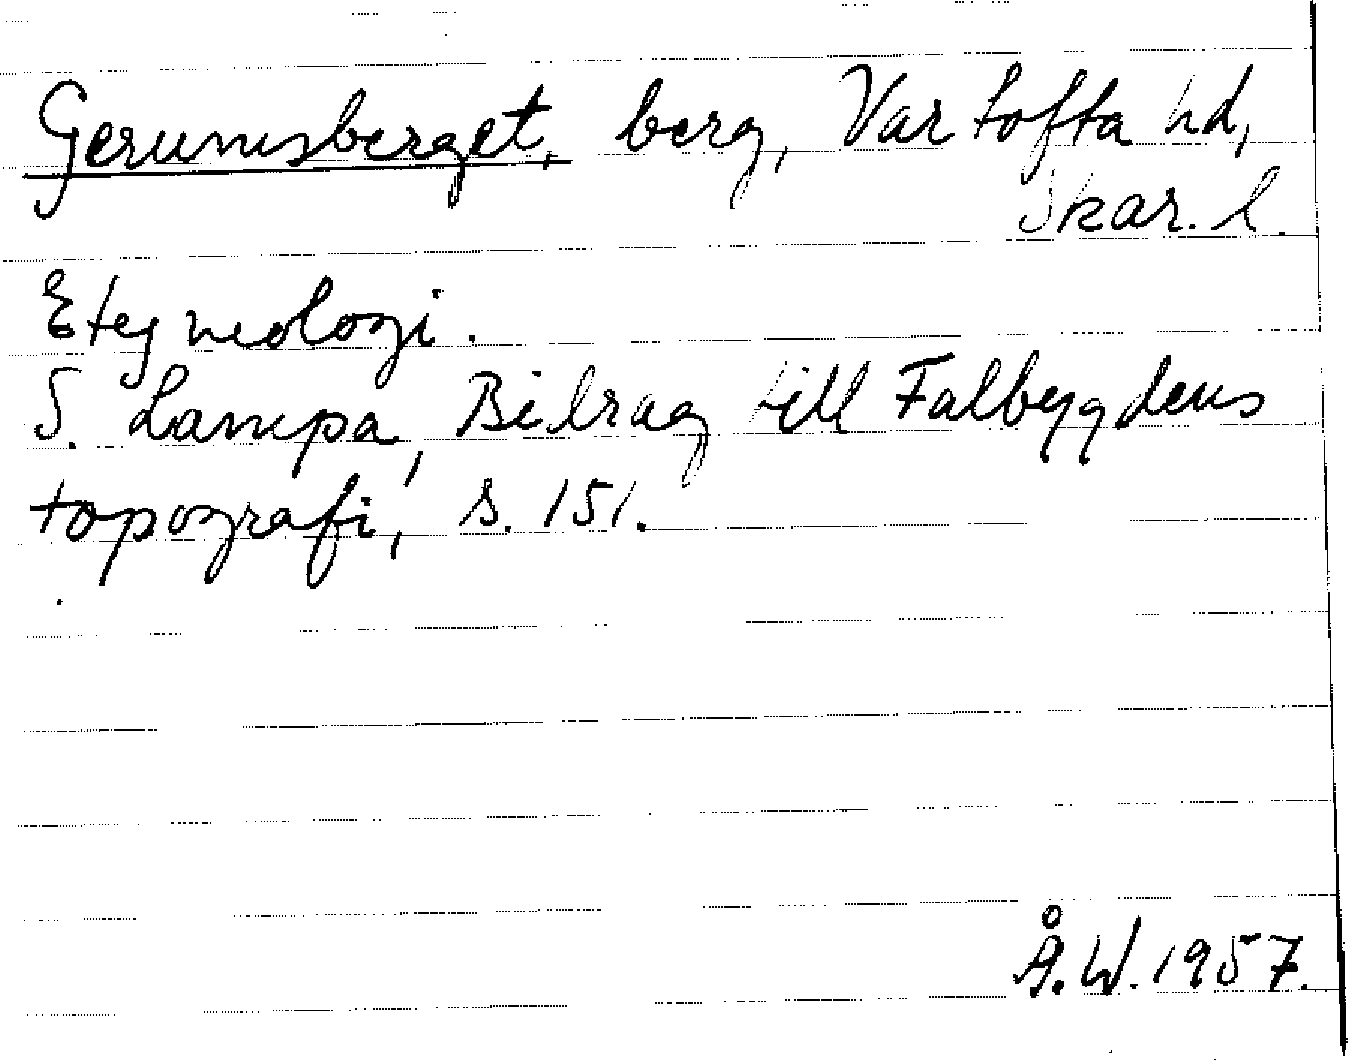 Gerumsberget, berg, Vartofta hd,
Skar. l.
Etymologi.
S. Lampa, Bidrag till Falbygdens
topografi, s. 151.
Å.W. 1957.